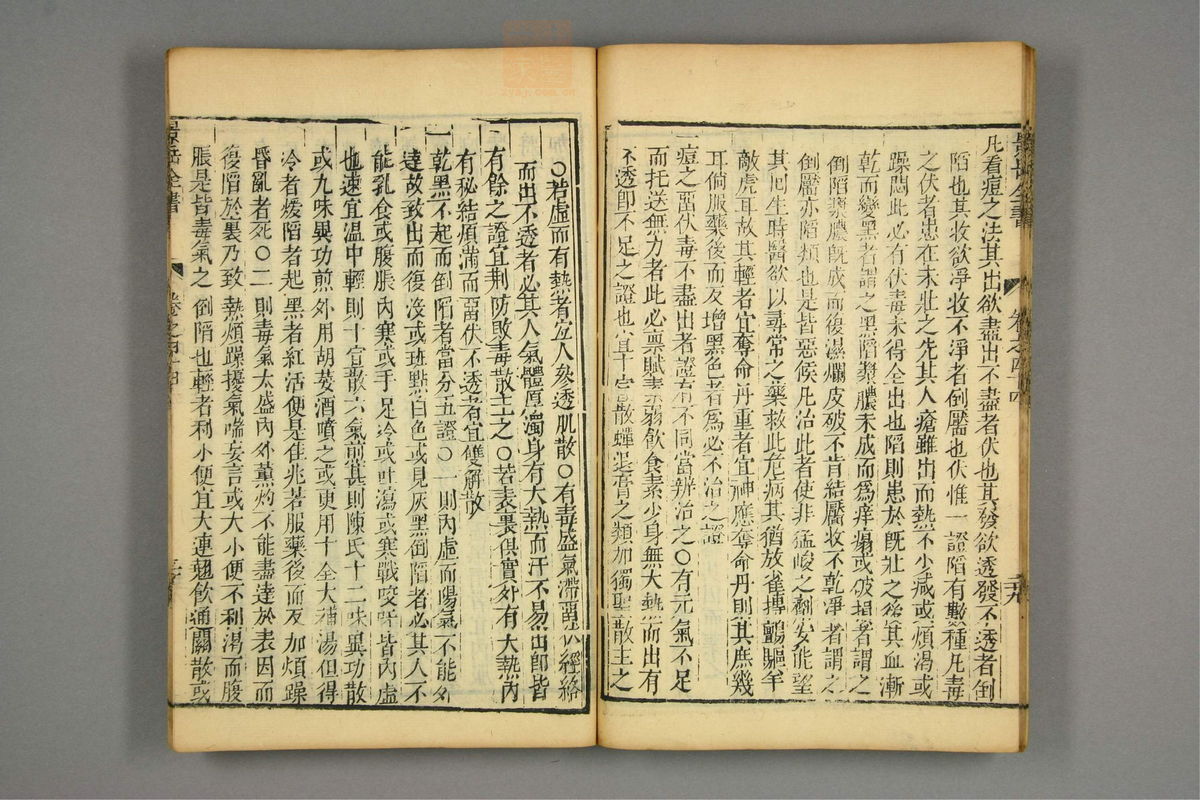 凡看痘之法其出欲盡出不盡者伏也其發欲透發不透者倒
陷也其收欲淨收不淨者倒靨也伏惟一證陷有數種凡毒
之伏者患在未壯之先其人瘡雖出而熱不少减或煩渴或
躁悶此必有伏毒未得全出也陷則患於旣壯之後其血漸
乾而變黑者謂之黑陷漿膿未成而爲痒塌或破損者謂之
倒陷漿膿旣成而復濕爛皮破不肯結靨收不乾淨者謂之
倒靨亦陷類也是皆惡候凡治此者使非猛峻之劑安能望
其囘生時醫欲以尋常之藥救此危病其猶放雀搏鸇驅羊
敵虎耳故其輕者宜奪命丹重者宜神應奪命丹則其庶幾
耳倘服藥後而反增黑色者爲必不治之證
一痘之畱伏毒不盡出者證有不同當辨治之○有元氣不足
而托送無力者此必禀賦素弱飲食素少身無大熱而出有
不透卽不足之證也宜十宣散蟬退膏之類加獨聖散主之
○若虛而有熱者宜人參透肌散○有毒盛氣滯畱於經絡
而出不透者必其人氣體厚濁身有大熱而汗不易出卽皆
有餘之證宜荆防敗毒散主之○若表裏俱實外有大熱內
有秘結煩滿而畱伏不透者宜雙解散
一乾黑不起而倒陷者當分五證○一則內虛而陽氣不能外
達故致出而復沒或斑點白色或見灰黑倒陷者必其人不
能乳食或腹脹內寒或手足冷或吐瀉或寒戰咬牙皆內虛
也速宜温中輕則十宣散六氣煎甚則陳氏十二味異功散
或九味異功煎外用胡荽酒噴之或更用十全大補湯但得
冷者煖陷者起黑者紅活便是佳兆若服藥後而反加煩躁
昏亂者死○二則毒氣太盛內外薰灼不能盡達於表因而
復陷於裏乃致熱煩躁擾氣喘妄言或大小便不利渴而腹
脹是皆毒氣之倒陷也輕者利小便宜大連翹飲通關散或
景岳全書
卷之四十四